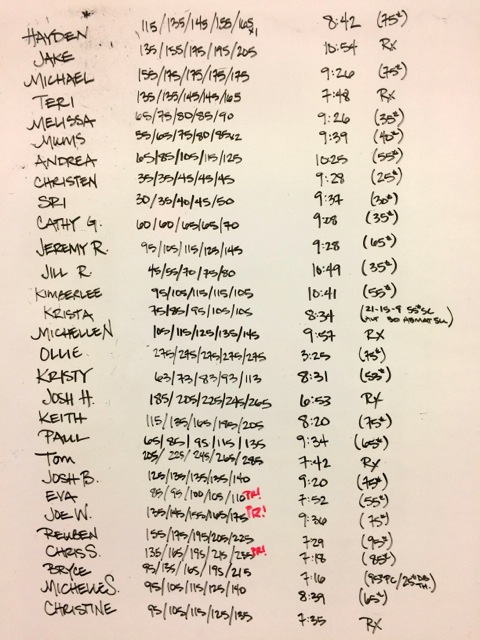 HAYDEN 115/135/145/155/165x1 8:42 (75#)
JAKE 135/155/175/195/205 10:54 Rx
MICHAEL 155/175/175/175/175 9:26 (75#)
TERI 135/135/145/145/165 7:48 Rx
MELISSA 65/75/80/85/90 9:26 (35#)
MUMS 55/65/75/80/85x2 9:39 (40#)
ANDREA 65/85/105/115/125 10:25 (55#)
CHRISTEN 35/35/45/45/45 9:28 (25#)
SRI 30/35/40/45/50 9:37 (30#)
CATHY G. 60/60/65/65/70 9:28 (35#)
JEREMY R. 95/105/115/125/145 9:28 (65#)
JILL R. 45/55/70/75/80 10:49 (35#)
KIMBERLEE 95/105/115/115/105 10:41 (55#)
KRISTA 75/85/95/105/105 8:34 (21-15-9 55# SC
50 ABMAT SU)
MICHELLE N 105/115/125/135/145 9:57 RX
OLLIE. 275/275/275/275/275 3:25 (75#)
KRISTY 63/73/83/93/113 8:31 (55#)
JOSH H. 185/205/225/245/265 6:53 RX
KEITH 115/135/165/185/205 8:20 (75#)
PAUL 65/85/95/115/135 9:34 (65#)
Tom 205/225/245/265/285 7:42 Rx
JOSH B. 125/135/135/135/140 9:20 (75#)
EVA 85/95/100/105/110 PR! 7:52 (55#)
JOE W. 135/145/155/165/175 PR! 9:36 (75#)
REUBEN 155/175/195/205/225 7:29 (95#)
CHRIS S. 135/165/195/215/235 PR! 7:18 (85#)
BRYCE 95/135/165/195/215 7:16 (95#PC/25#DB
TH.)
MICHELLE S. 95/105/115/125/140 8:39 (65#)
CHRISTINE 95/105/115/125/135 7:35 RX